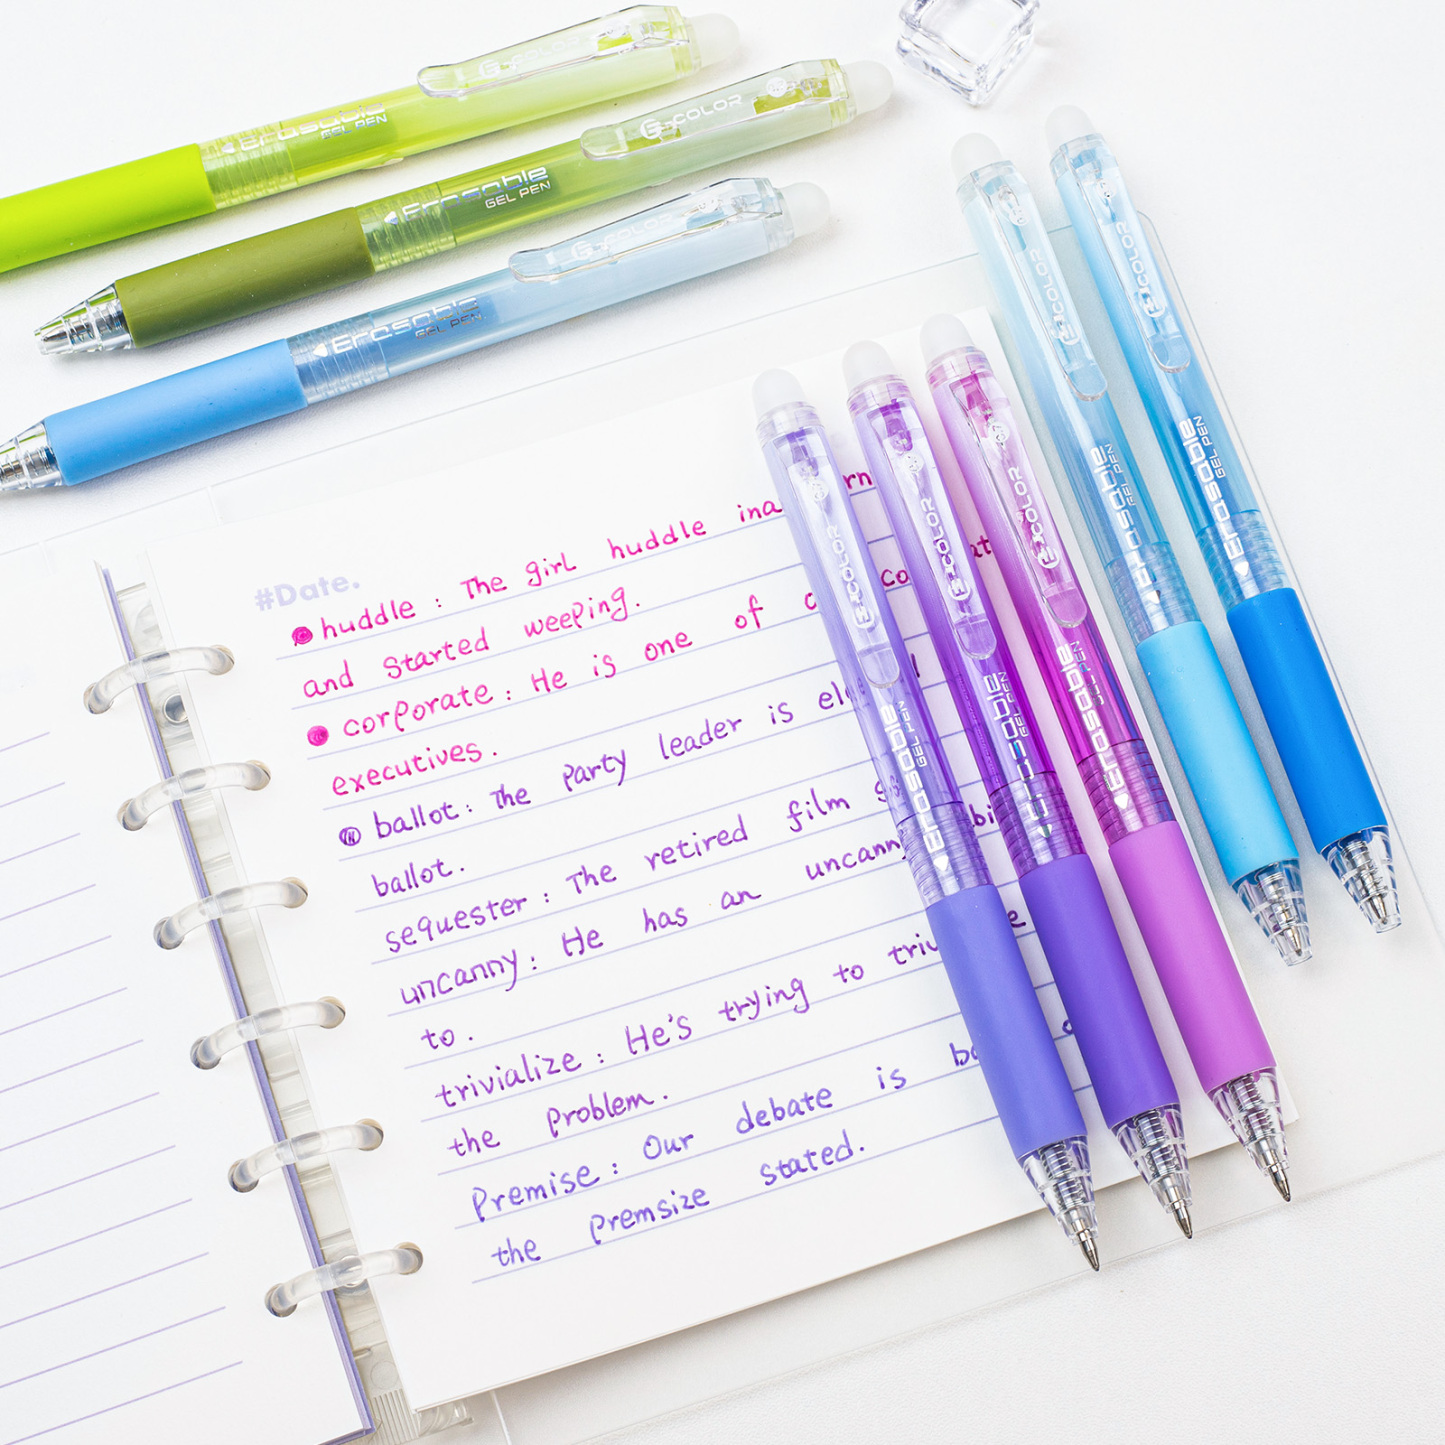 Erasable
GEL PEN
COLOR
Erasable
GEL PEN
COLOR
Erasable
GEL PEN
COLOR
#Date.
huddle : The girl huddle in a
and started weeping.
corporate : He is one of
executives.
ballot : The party leader is
ballot.
sequester : The retired film
uncanny : He has an uncanny
to.
trivialize : He's trying to
the problem.
Premise : Our debate is
the premsize stated.
COLOR
Erasable
GEL PEN
COLOR
Erasable
GEL PEN
COLOR
Erasable
GEL PEN
COLOR
Erasable
GEL PEN
COLOR
Erasable
GEL PEN